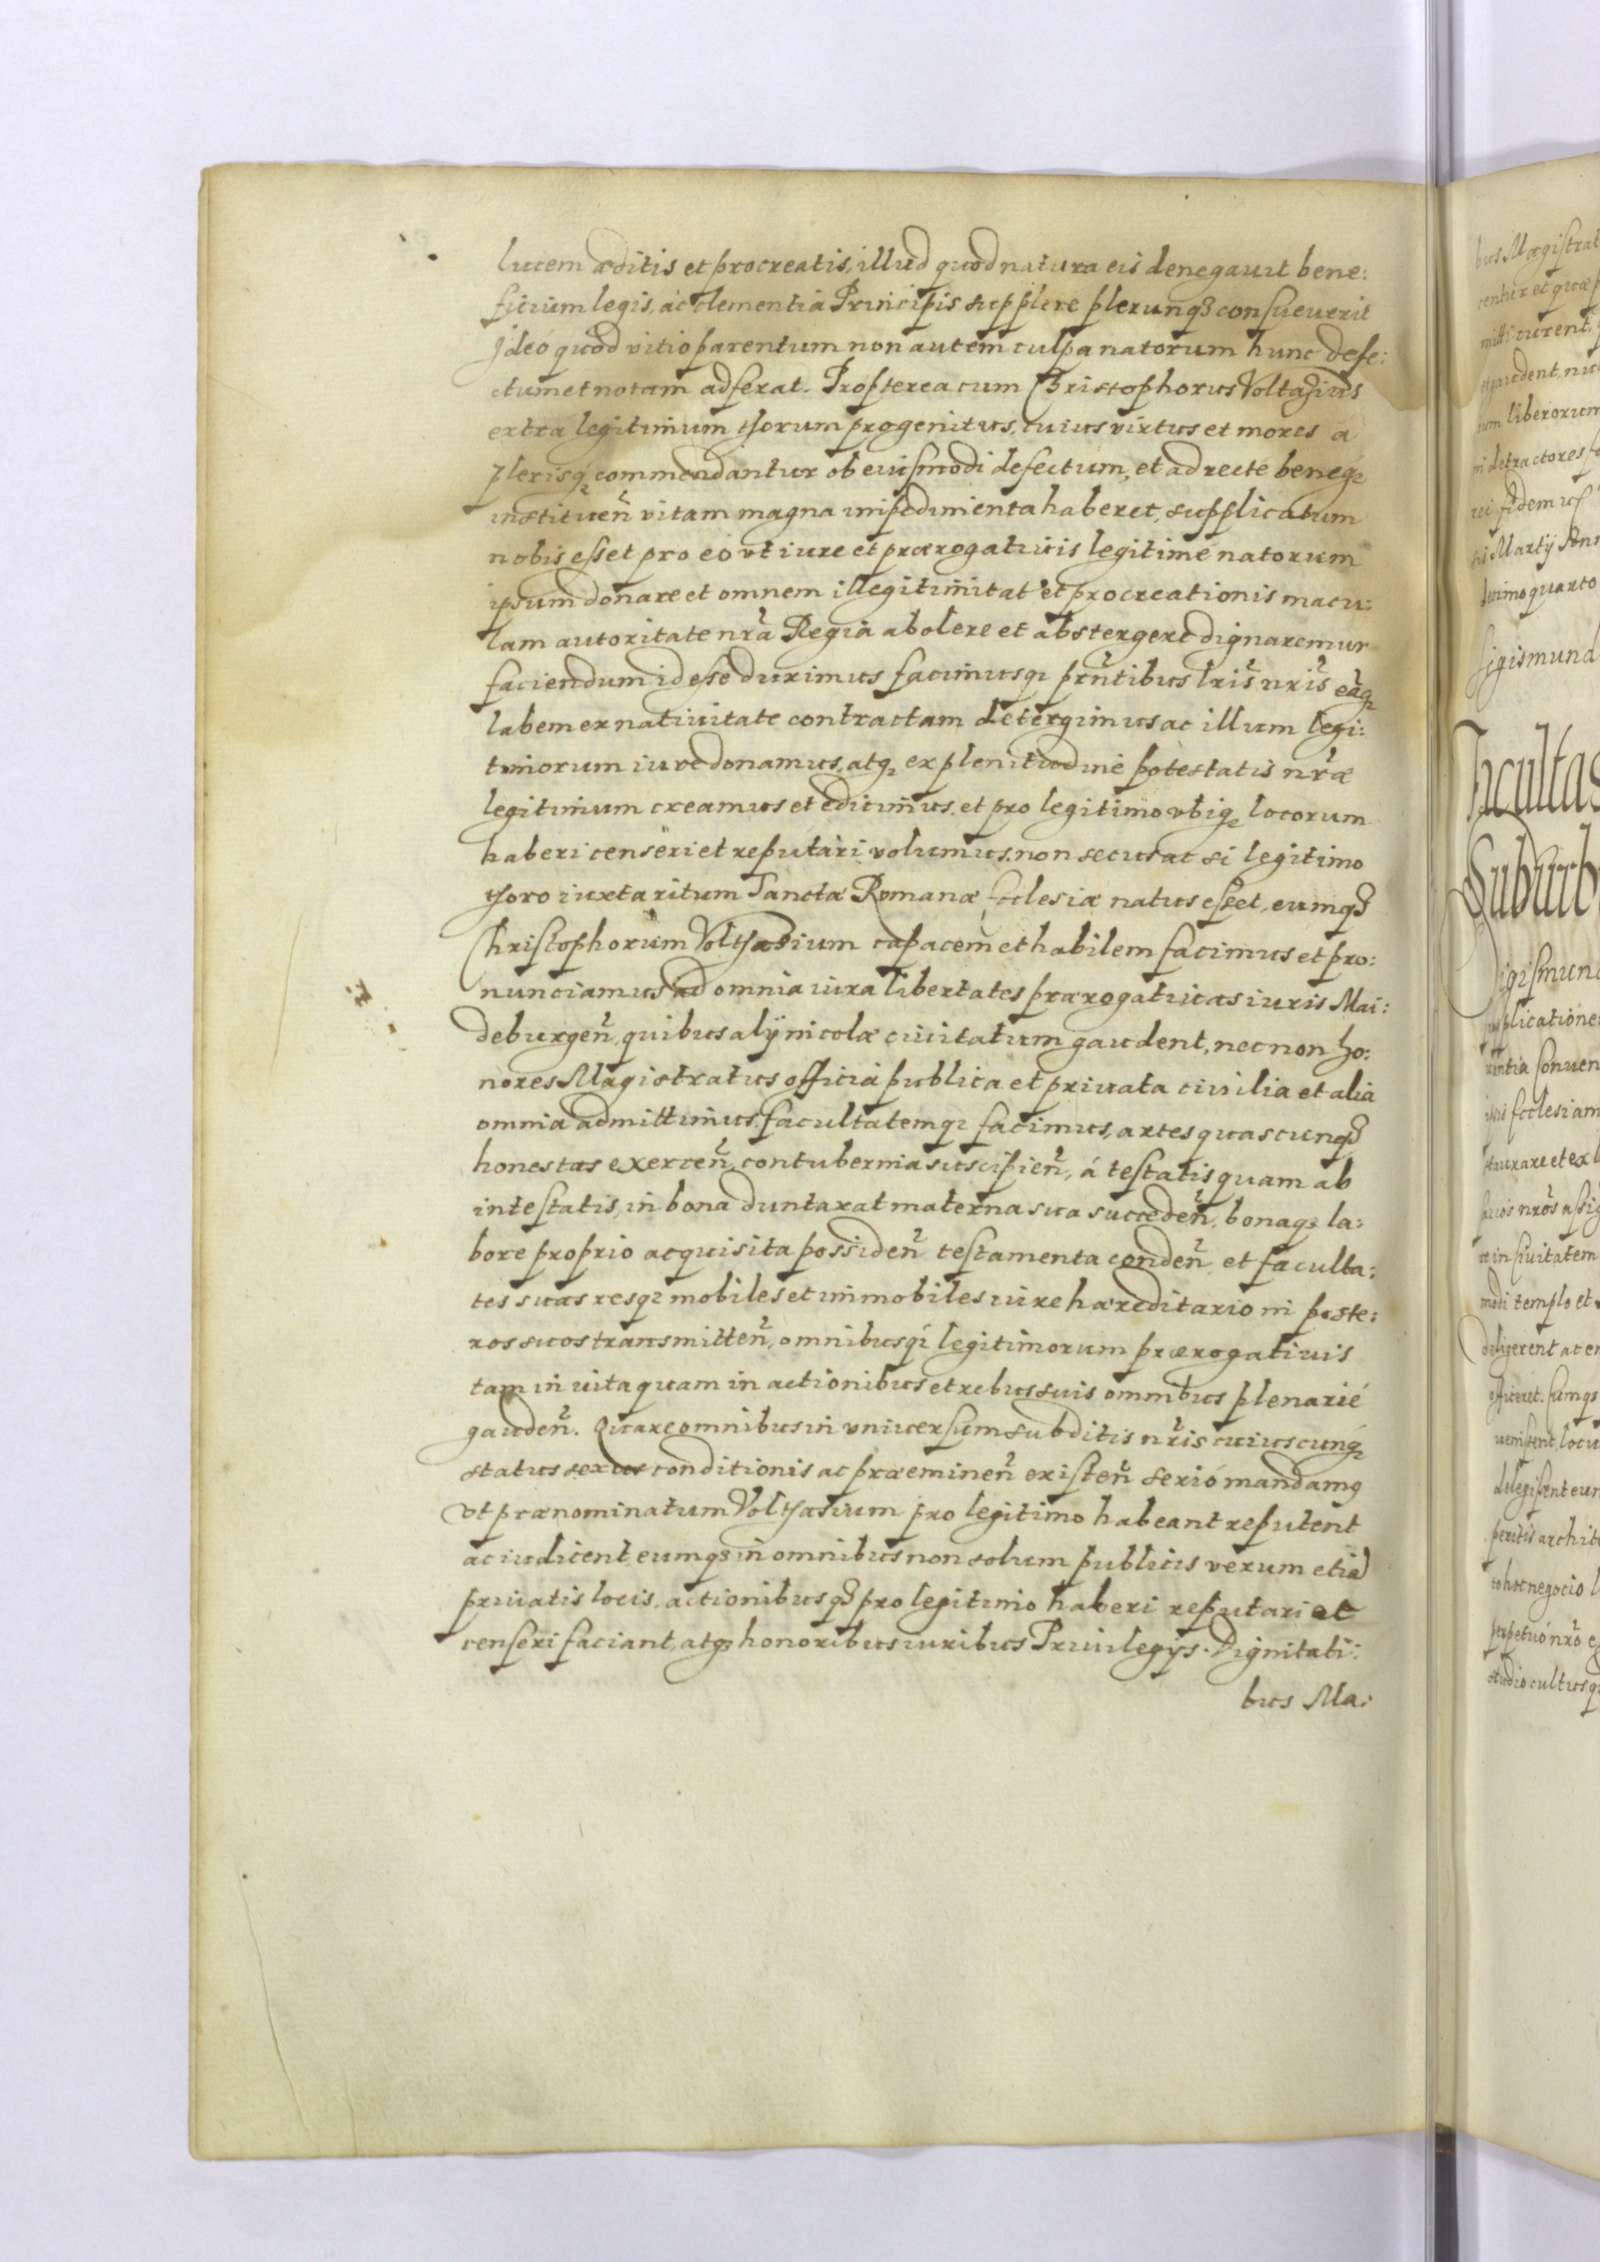 lucem æditis et procreatis, illud quod natura eis denegauit bene:
ficium legis, ac clementia Principis supplere plerunq3 consueuerit
Ideó quod vitio parentum non autem culpa natorum hunc defe:
ctum et notam adferat. Propterea cum Christophorus Voltasius
extra legitimum thorum progenitus, cuius virtus et mores a
plerisq3 commendantur ob eiusmodi defectum, et ad recte beneq3
instituen̄ vitam magna impedimenta haberet, supplicatum
nobis esset pro eo vt iure et prærogatiuis legitime natorum
ipsum donare et omnem illegitimitat et procreationis macu:
lam autoritate nr̄a Regia abolere et abstergere dignaremur
faciendum id esse duximus facimusq3 pn̄tibus lr̄is nr̄is eāq3
labem ex natiuitate contractam detergimus ac illum legi:
timorum iure donamus, atq3 ex plenitudine potestatis nr̄æ
legitimum creamus et edicimus, et pro legitimo vbiq3 locorum
haberi censeri et reputari volumus, non secus ac si legitimo
thoro iuxta ritum Sanctæ Romanæ Ecclesiæ natus esset, eumq3
Christophorum Volthasium capacem et habilem facimus et pro:
nunciamus ad omnia iura libertates prærogatiuas iuris Mai:
deburgen̄, quibus alij incolæ ciuitatum gaudent, necnon ho:
nores Magistratus officia publica et priuata ciuilia et alia
omnia admittimus, facultatemq3 facimus, artes quascunq3
honestas exercen̄, contubernia suscipien̄, á testatis quam ab
intestatis, in bona duntaxat materna sua succeden̄, bonaq3 la:
bore proprio acquisita possiden̄ testamenta conden̄ et faculta:
tes suas resq3 mobiles et immobiles iure hæreditario in poste:
ros suos transmitten̄, omnibusq3 legitimorum prærogatiuis
tam in uita quam in actionibus et rebus suis omnibus plenarié
gauden̄. Quare omnibus in vniuersum subditis nr̄is cuiuscunq3
status sexus conditionis ac præeminen̄ existen̄ serió mandamq
vt prænominatum Volthasium pro legitimo habeant reputent
ac iudicent, eumq3 in omnibus non solum publicis verum etiā
priuatis locis, actionibusq3 pro legitimo haberi reputari et
censeri faciant, atq3 honoribus iuribus Priuilegijs. Dignitati:
bus Ma:
bus Magistrat
centur et quæ
mitti curent,
liberorum
detractores
rei fidem
Martij Ann
decimo quarto
Sigismund
Facultas
Suburb
Sigismun
pplicatione
Conuen
Ecclesiam
staurare et ex
nr̄os
in Ciuitatem
modi templo et
diligerent ac
Cumq3
uenissent, locu
delegissent eu
peritis archit
to hoc negocio
perpetuó nr̄o
studio cultusq3